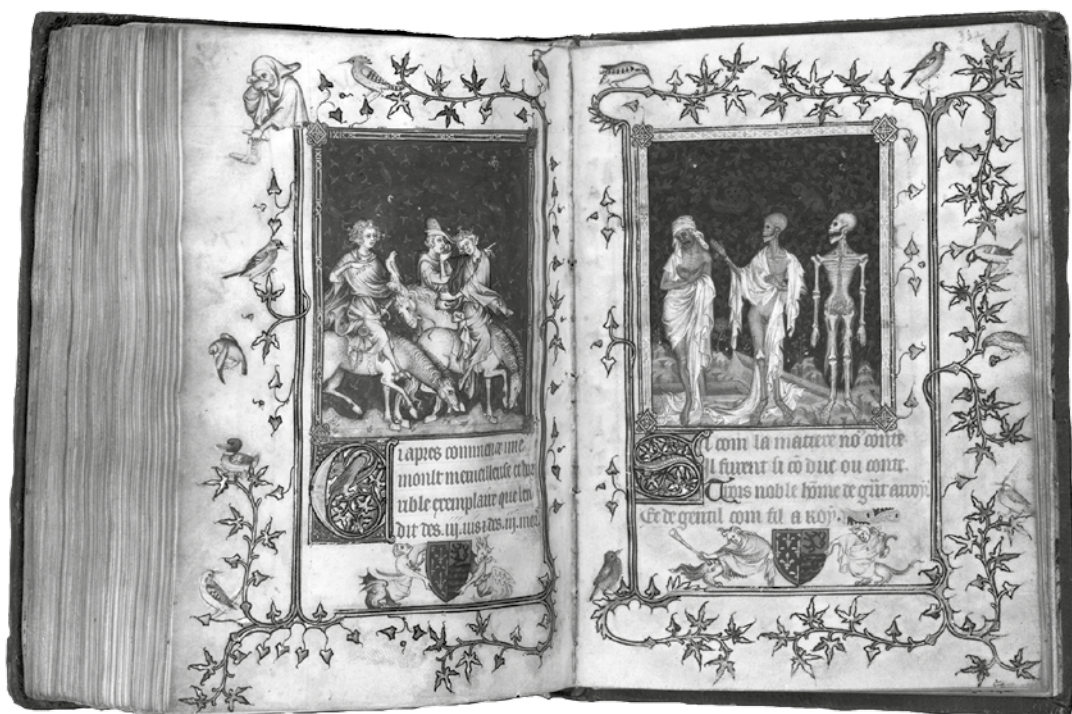 Ci apres commence une
moult merveilleuse et hor
rible exemplaire que len
dit des .iij. vis z des .iij. mors
Si com la matiere no⁹ conte
Il furent si cō duc ou conte.
Trois noble hōme de grāt arroy
Et de gentil com fil a Roy.